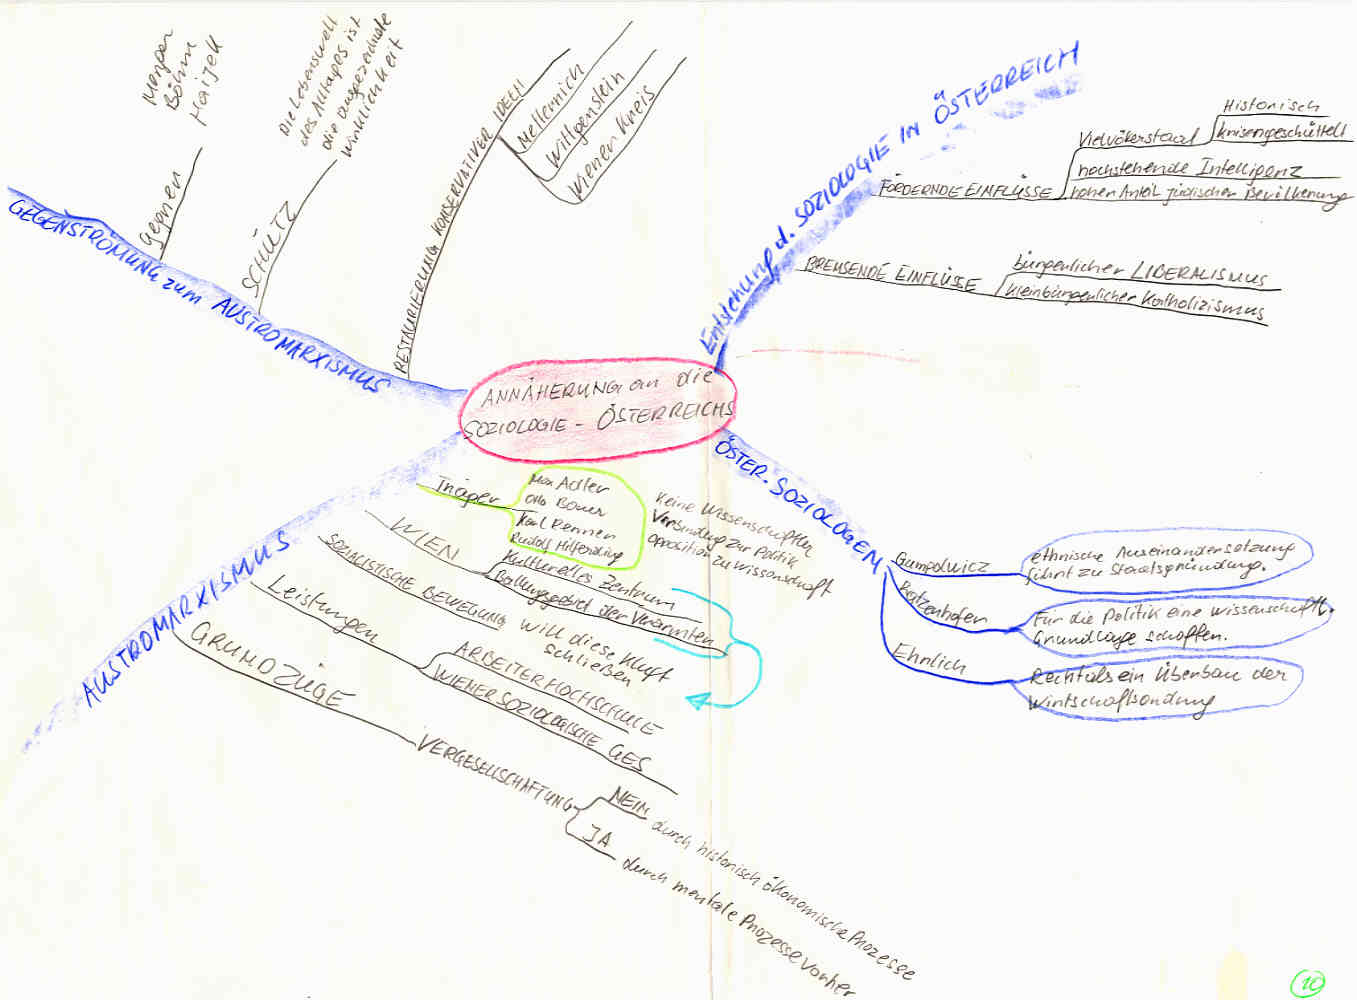 ANNÄHERUNG an die
SOZIOLOGIE - ÖSTERREICHS
Entstehung d. SOZIOLOGIE IN ÖSTERREICH
FÖRDERNDE EINFLÜSSE
Vielvölkerstaat
Historisch
krisengeschüttelt
hochstehende Intelligenz
hoher Anteil jüdischer Bevölkerung
BREMSENDE EINFLÜSSE
bürgerlicher LIBERALISMUS
kleinbürgerlicher Katholizismus
ÖSTER. SOZIOLOGEN
Gumpolwicz
ethnische Auseinandersetzung
führt zu Staatsgründung.
Ratzenhofer
Für die Politik eine wissenschaftl.
Grundlage schaffen.
Ehrlich
Recht als ein Überbau der
Wirtschaftsordnung
AUSTROMARXISMUS
Träger
Max Adler
Otto Bauer
Karl Renner
Rudolf Hilferding
Keine Wissenschaftler
Verbindung zur Politik
Opposition zu Wissenschaft
WIEN
Kulturelles Zentrum
Ballungsgebiet der Verarmten
SOZIALISTISCHE BEWEGUNG will diese Kluft
schließen
Leistungen
ARBEITERHOCHSCHULE
WIENER SOZIOLOGISCHE GES
GRUNDZÜGE
VERGESELLSCHAFTUNG
NEIN
durch historisch ökonomische Prozesse
JA
durch mentale Prozesse vorher
GEGENSTRÖMUNG zum AUSTROMARXISMUS
Gegner
Menger
Böhm
Haijek
SCHÜLTZ
Die Lebenswelt
des Alltages ist
die ausgezeichnete
Wirklichkeit
RESTAURIERUNG KONSERVATIVER IDEEN
Metternich
Wittgenstein
Wiener Kreis
10